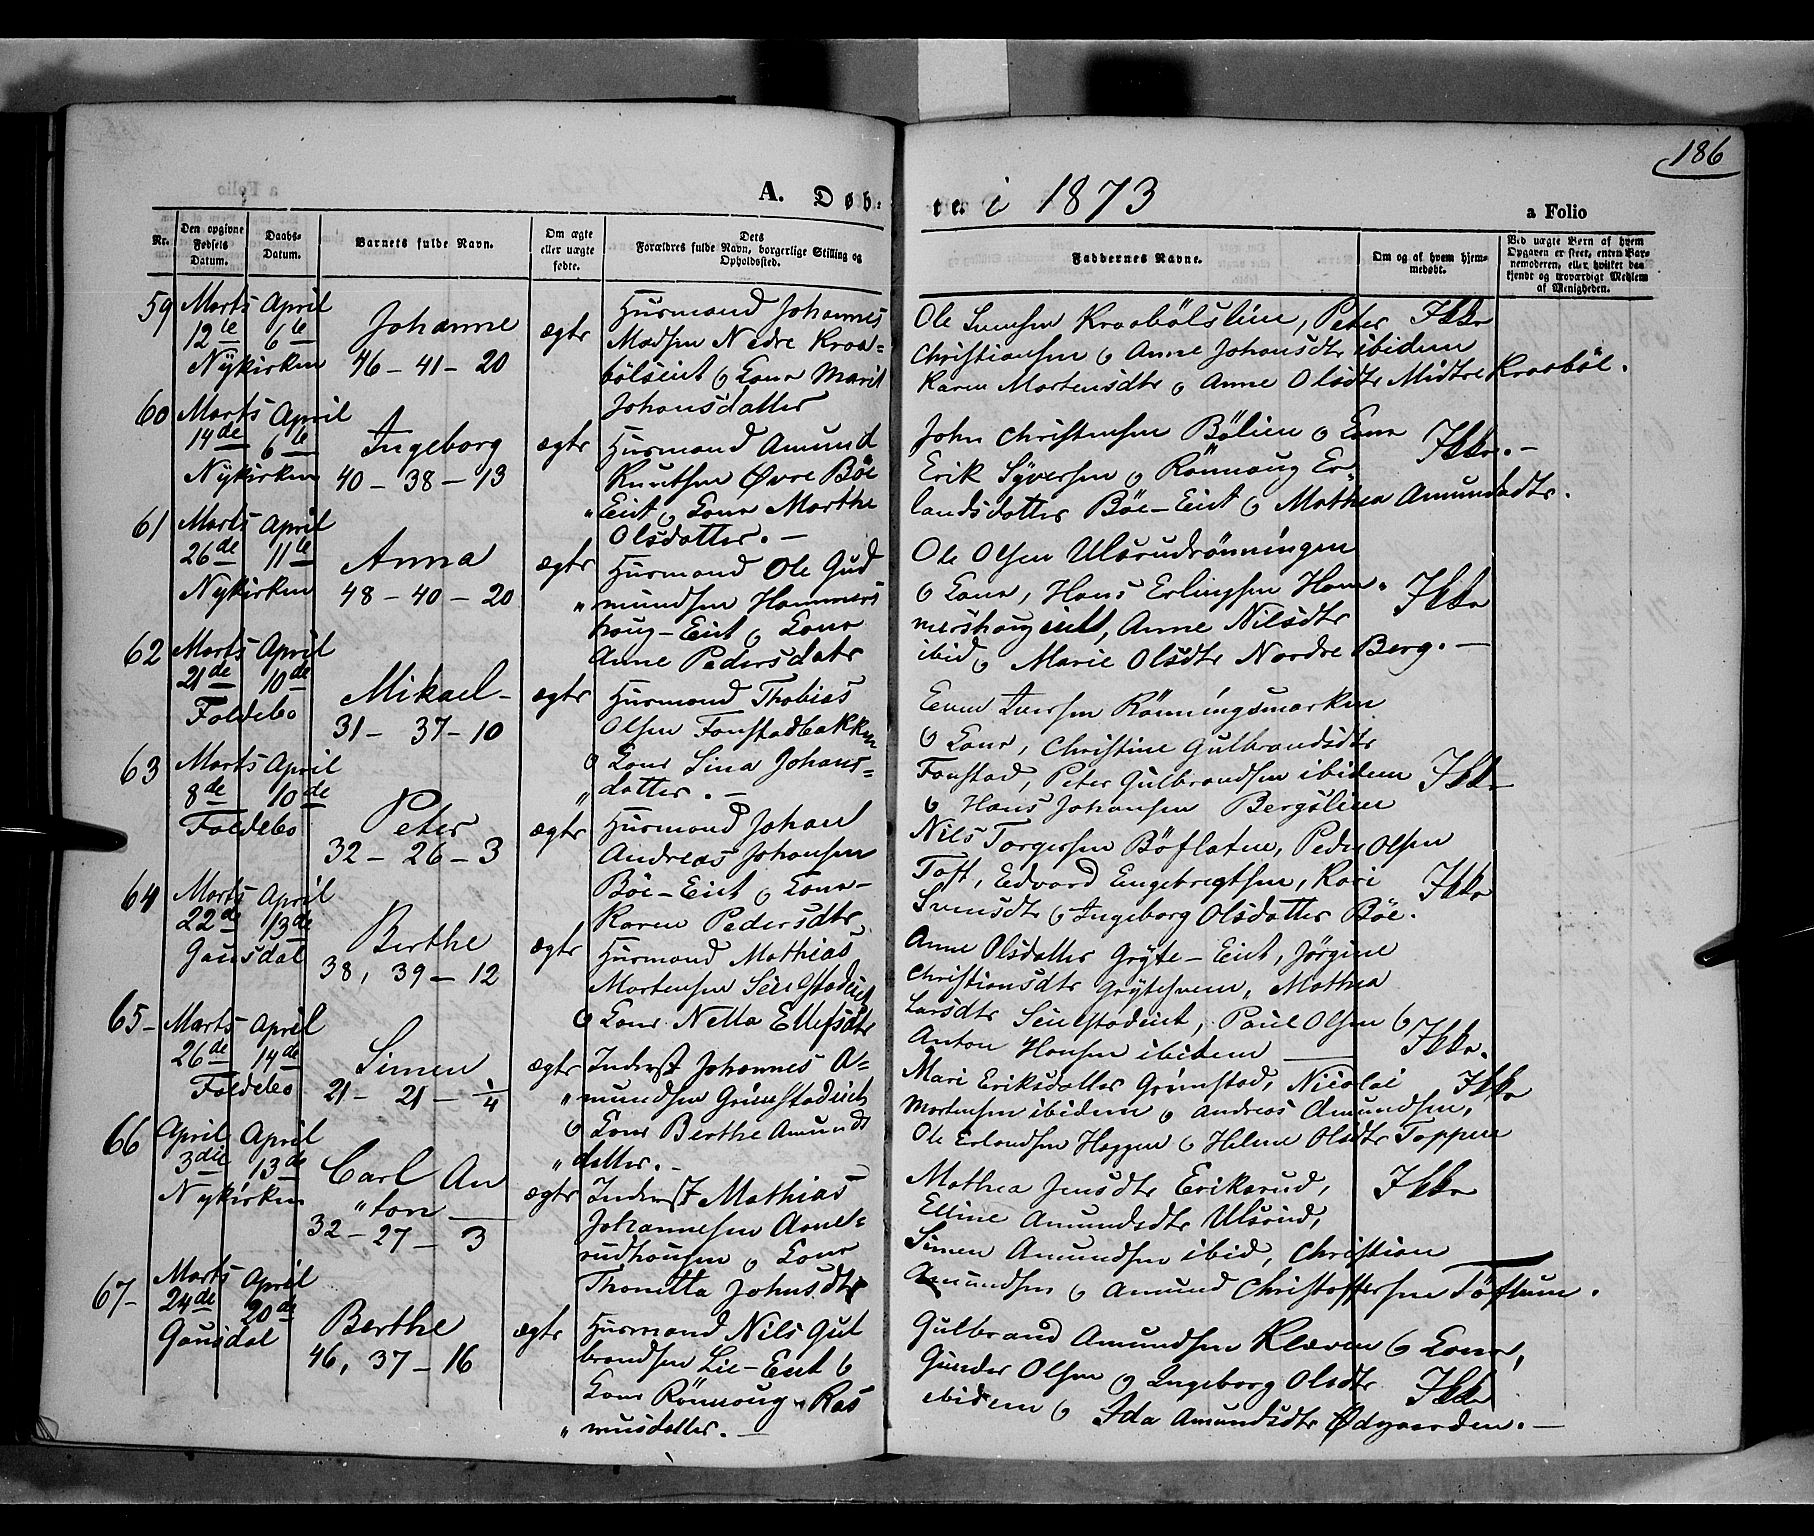 186
A. Døb-
te. i 1873
a Folio
Nr.
Den opgivne
Fødsels
Datum.
Daabs-
Datum.
Barnets fulde Navn.
Om ægte
eller uægte
fødte.
Dets
Forældres fulde Navn, borgerlige Stilling og
Opholdssted.
Faddernes Navne.
Om og af hvem hjem-
medøbt.
Ved uægte Børn af hvem
Opgaven er skeet, enten Bar-
nemoderen, eller hvilket bekjendt og troværdigt Medlem
af Menigheden.
59 Marts April
12te 6te
Nykirken
Johanne
46 - 41 - 20
ægte
Husmand Johannes
Madsen Nedre Kraa-
bölseiet o Kone Marit
Johansdatter
Ole Svensen Kraabölslien, Peter Ikke
Christiansen o Anne Johansdtr ibidem
Karen Mortensdtr o Anne Olsdtr Midtre Kraaböl.
60 Marts April
14de 6te
Nykirken
Ingeborg
40 - 38 - 13
ægte
Husmand Amund
Knutsen Øvre Böe
"Eiet o Kone Marthe
Olsdatter. -
John Christensen Bölien o Kone
Erik Syversen o Rönnaug Er-
landsdatter Böe-Eiet o Mathea Amundsdtr.
Ikke. -
61 Marts April
26de 11te
Nykirken
Anna
48 - 40 - 20
ægte
Husmand Ole Gud
"mundsen Hammers
houg-Eiet o Kone
Anne Pedersdatr
Ole Olsen Ulsrudrönningen
o Kone, Hans Erlingsen Ham-
mershougeiet, Anne Nilsdtr
ibid o Marie Olsdtr Nordre Berg. -
Ikke
62 Marts April
21de 10de
Foldebo
Mikael -
31 - 37 - 10
ægte
Husmand Thobias
Olsen Fonstadbakken
o Kone Lina Johans=
"datter. -
Even Iversen Rönningsmarken
o Kone, Christine Gulbrandsdtr
Fonstad, Peter Gulbrandsen ibidem Ikke
o Hans Johansen Bergslien
63 Marts April
8de 10de
Foldebo
Peter
32 - 26 - 3
ægte
Husmand Johan
Andreas Johansen
Böe-Eiet o Kone-
Karen Pedersdtr
Nils Torgersen Böflaten, Peder Olsen
Toft, Edvard Engebregtsen, Kari
Svensdtr o Ingeborg Olsdatter Böe.
Ikke
64 Marts April
22de 13de
Gausdal
Berthe
38, 39 - 12
ægte
Husmand Mathias
Mortensen Seielstadeiet
o Kone Netta Ellefsdtr
Anne Olsdatter Gryte-Eiet, Jörgine
Christiansdtr Grytesveen, Mathea
Larsdtr Seielstadeiet, Paul Olsen o
Anton Hansen ibidem
Ikke.
65 - Marts April
26de 14de
Foldebo
Simen
21 - 21 - 1/4
ægte
Inderst Johannes A-
"mundsen Grimstadeiet
o Kone Berthe Amunds
"datter. -
Mari Eriksdatter Grimstad, Nicolai Ikke
Mortensen ibidem o Andreas Amundsen,
Ole Erlandsen Haggen o Helene Olsdtr Toppen
66 April April
3die 13de
Nykirken
Carl An
"ton
32 - 27 - 3
ægte
Inderst Mathias
Johannesen Arnet-
rudhougen o Kone
Thonetta Johnsdtr
Mathea Jensdtr Eriksrud,
Elline Amundsdtr Ulsrud,
Simen Amundsen ibid, Christian
Amundsen o Amund Christoffersen Töftum.
Ikke
67 - Marts April
24de 20de
Gausdal
Berthe
46, 37 - 16
ægte
Husmand Nils Gul
brandsen Lie-Eiet o
Kone Rönnoug Ras
"musdatter. -
Gulbrand Amundsen Kleven o Kone,
Gunder Olsen o Ingeborg Olsdtr
ibidem o Ida Amundsdtr Ødgaarden. -
Ikke